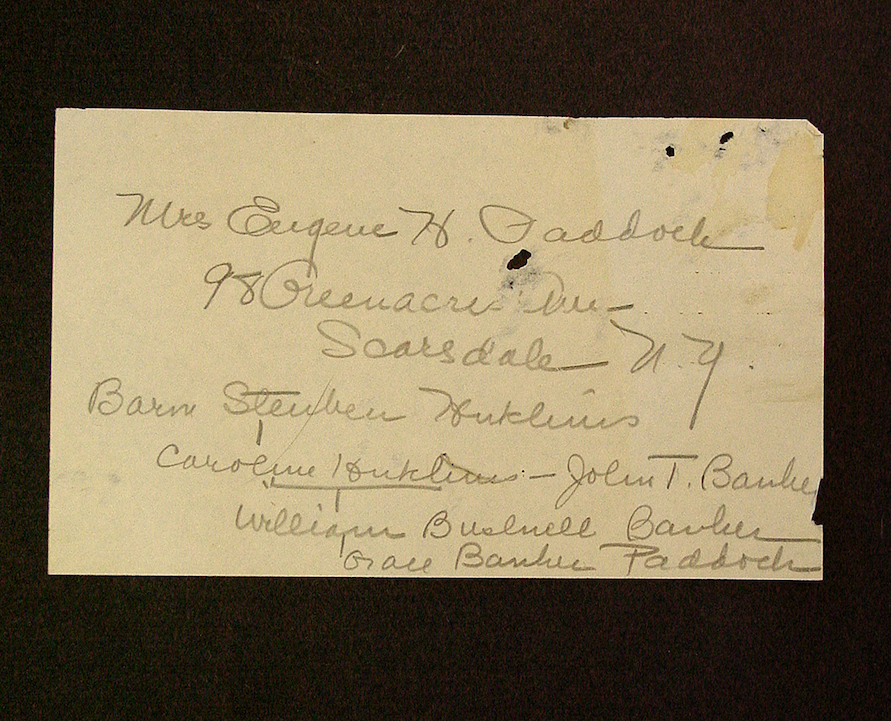 Mrs Eugene H. Paddock
98 Greenacres Ave
Scarsdale N.Y.
Baron Steuben
Caroline – John T. Banker
William Bushnell Banker
Grace Banker Paddock